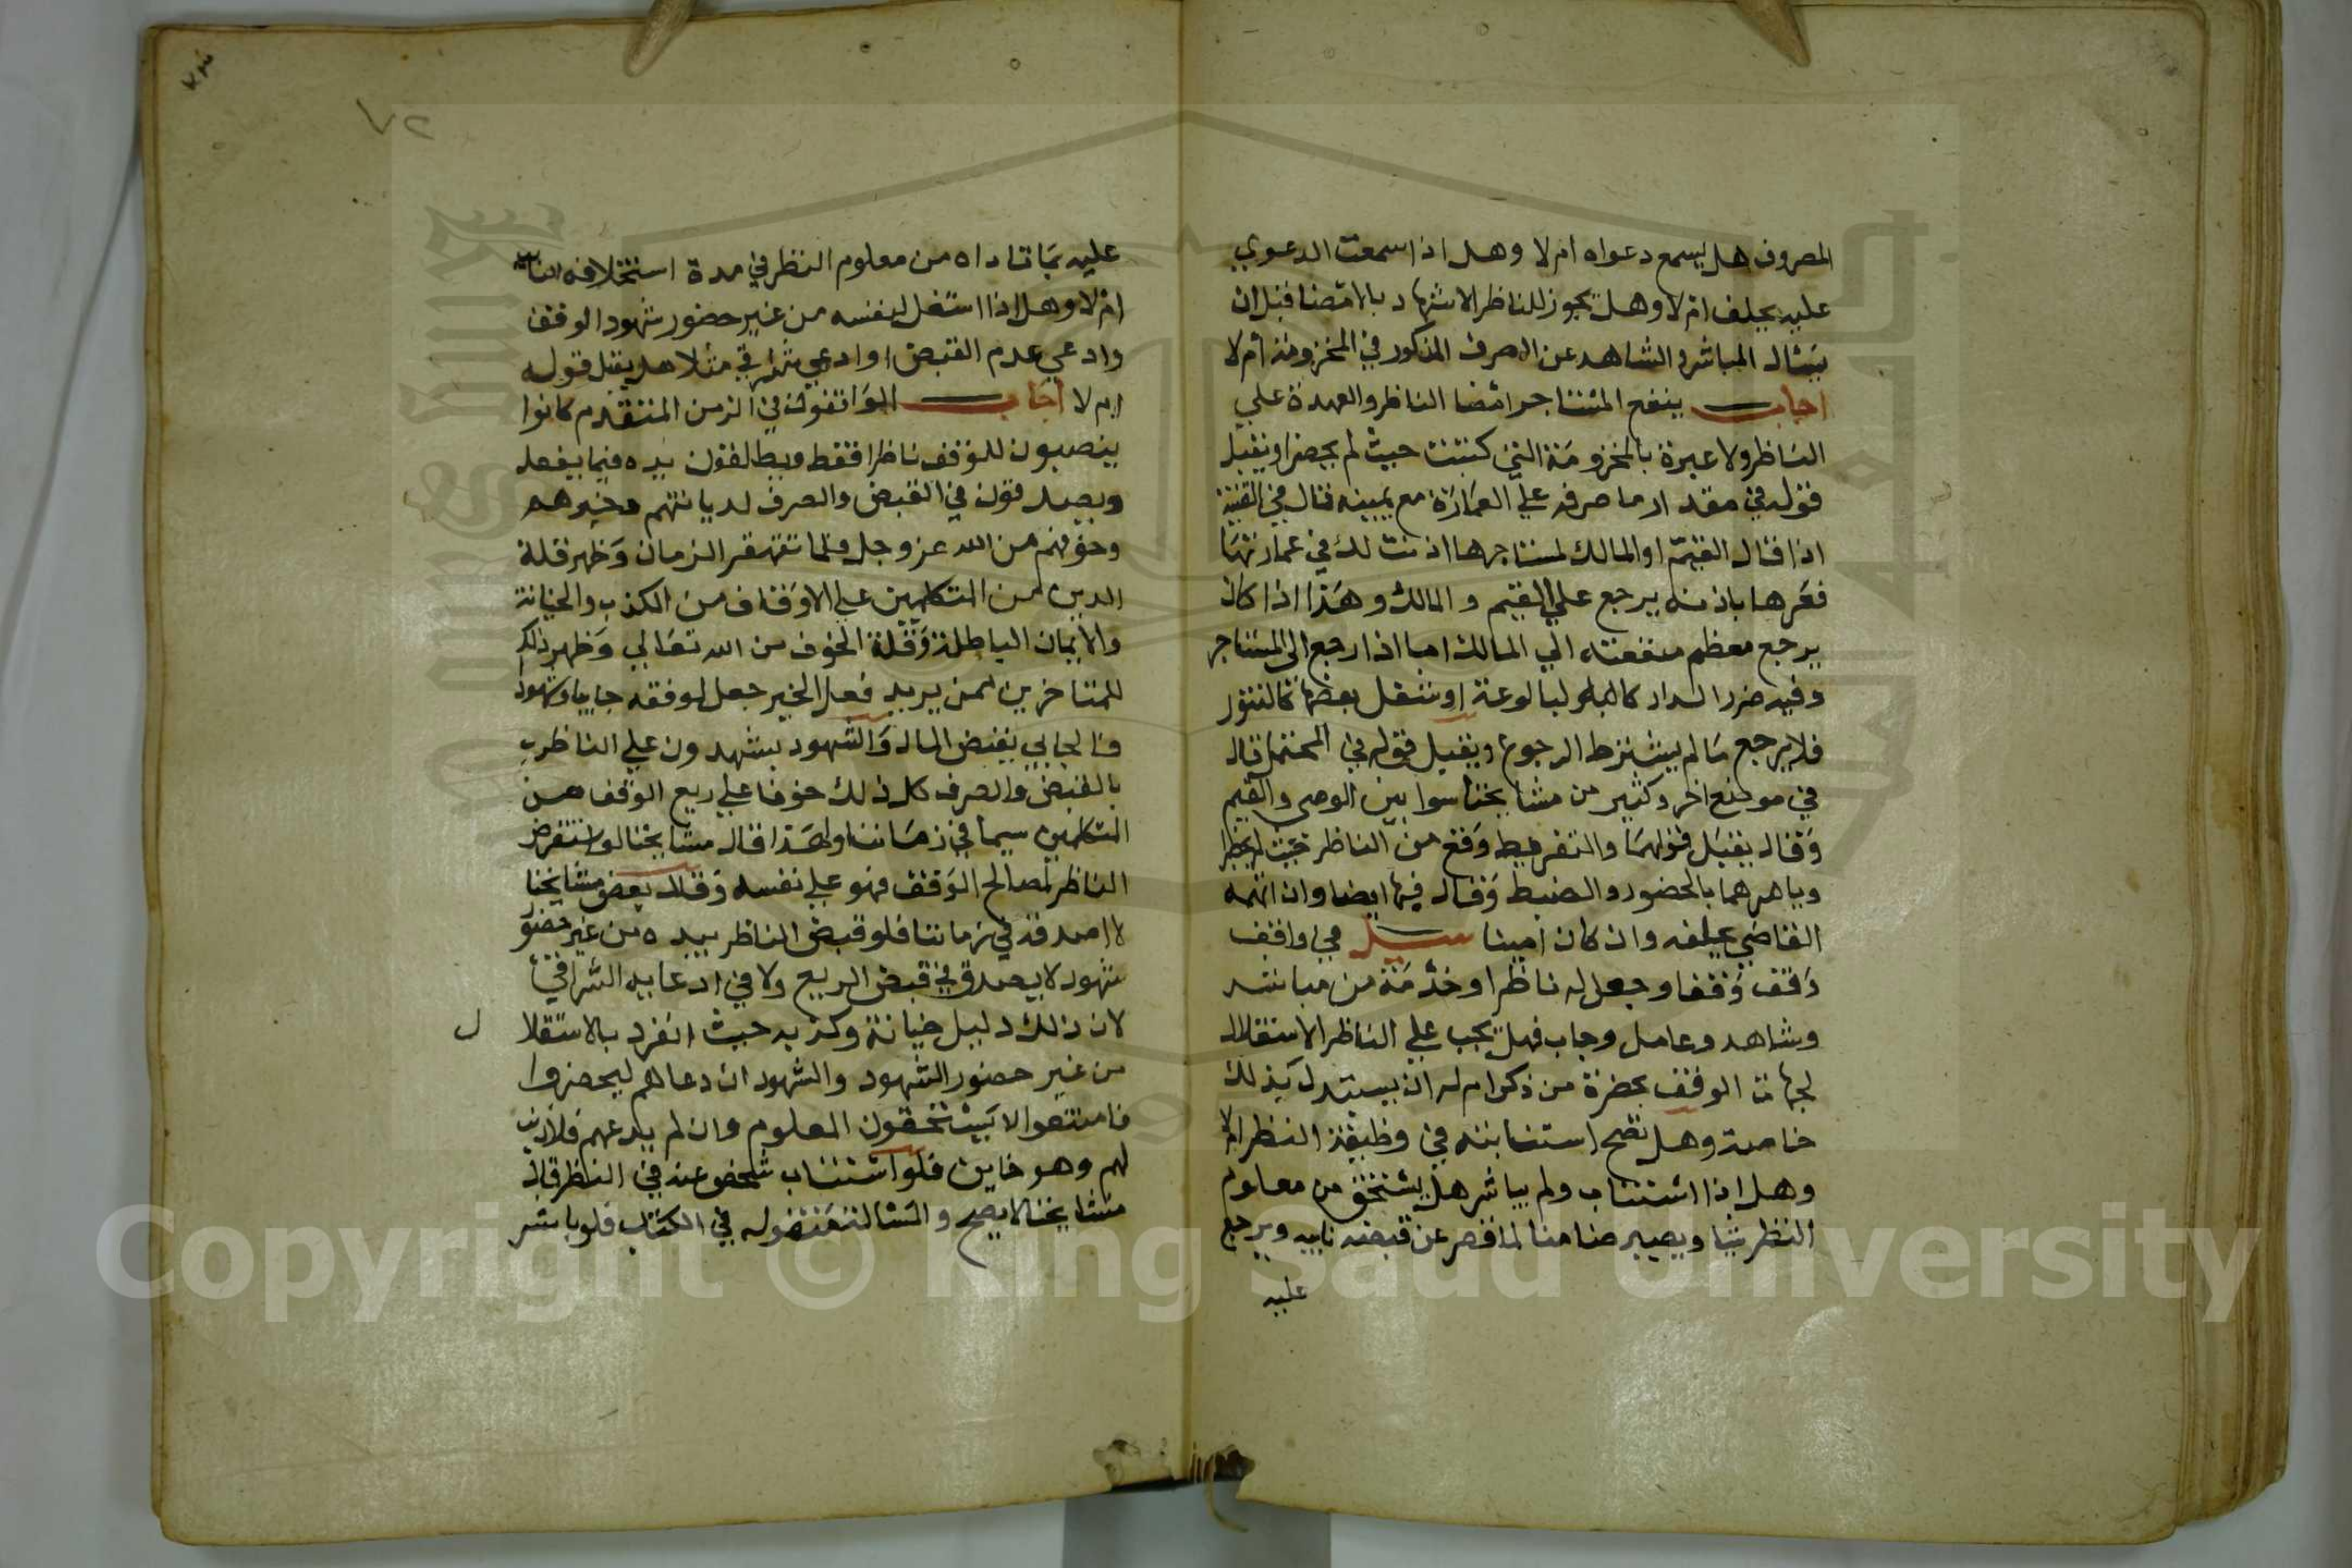 المصروف هل يسمع دعواه ام لا وهل اذا سمعت الدعوي
عليه يحلف ام لا وهل يجوز للناظر الاشهاد بالامضا قبل ان
يسال المباشر والشاهد عن الصرف المذكور في المخزومة ام لا
اجاب ينفع المستاجر امضا الناظر والعهدة علي
الناظر ولا عبرة بالمخزومة التي كتبت حيث لم يحضرا ويقبل
قوله في مقدار ما صرفه علي العمارة مع يمينه قال في القنية
اذا قال القيم او المالك لمستاجرها اذنت لك في عمارتها
فعمرها باذنه يرجع علي القيم والمالك وهذا اذا كان
يرجع معظم منفعته الي المالك اما اذا رجع الي المستاجر
وفيه ضرر الدار كالبالوعة او شغل بعضها كالتنور
فلا يرجع ما لم يشترط الرجوع ويقبل قوله في المحتمل قال
في موضع اخر وكثير من مشايخنا سوا بين الوصي والقيم
وقال يقبل قولهما والتفريط وقع من الناظر حيث لم يحضرا
ويامرهما بالحضور والضبط وقال فيها ايضا وان اتهمه
القاضي يحلفه وان كان امينا سيل في واقف
وقف وقفا وجعل له ناظرا وخدمة من مباشر
وشاهد وعامل وجاب فهل يجب علي الناظر الاستقلال
لجهات الوقف بحضرة من ذكر ام له ان يستدل بذلك
خاصة وهل تصح استنابته في وظيفة النظر ام لا
وهل اذا استناب ولم يباشر هل يستحق من معلوم
النظر شيا ويصير ضامنا لما قصر عن قبضه نايبه ويرجع
عليه
٧٢
عليه بما تاداه من معلوم النظر في مدة استخلافه
ام لا وهل اذا استغل لنفسه من غير حضور شهود الوقف
وادعي عدم القبض او ادعي شراقي مثلا هل يقبل قوله
ام لا اجاب الواقفون في الزمن المتقدم كانوا
ينصبون للوقف ناظرا فقط ويطالقون يده فيما يفعله
ويصدقون في القبض والصرف لديانتهم وخيرهم
وخوفهم من الله عز وجل فلما تقهقر الزمان وظهر قلة
الدين لمن المتكلمين علي الاوقاف من الكذب والخيانة
والايمان الباطلة وقلة الخوف من الله تعالي وظهر ذلك
للمتاخرين لمن يريد فعل الخير جعل لوقفه جابيا وشهود
فالجابي يقبض المال والشهود يشهدون علي الناظر
بالقبض والصرف كل ذلك خوفا علي ريع الوقف من
المتكلمين سيما في زماننا ولهذا قال مشايخنا لو استقرض
الناظر لمصالح الوقف فهو علي نفسه وقال بعض مشايخنا
لا اصدقه في زماننا فلو قبض الناظر بيده من غير حضور
شهود لا يصدق في قبض الريع ولا في ادعايه الشراقي
لان ذلك دليل خيانته وكذبه حيث انفرد بالاستقلا
ل
من غير حضور الشهود والشهود ان دعاهم ليحضروا
فامتنعوا لا يستحقون المعلوم وان لم يدعهم فلا ذنب
لهم وهو خاين فلو استناب شخص عنه في النظر قال
مشايخنا لا يصح والمسالة منقولة في الكتاب فلو باشر
Copyright © King Saud University